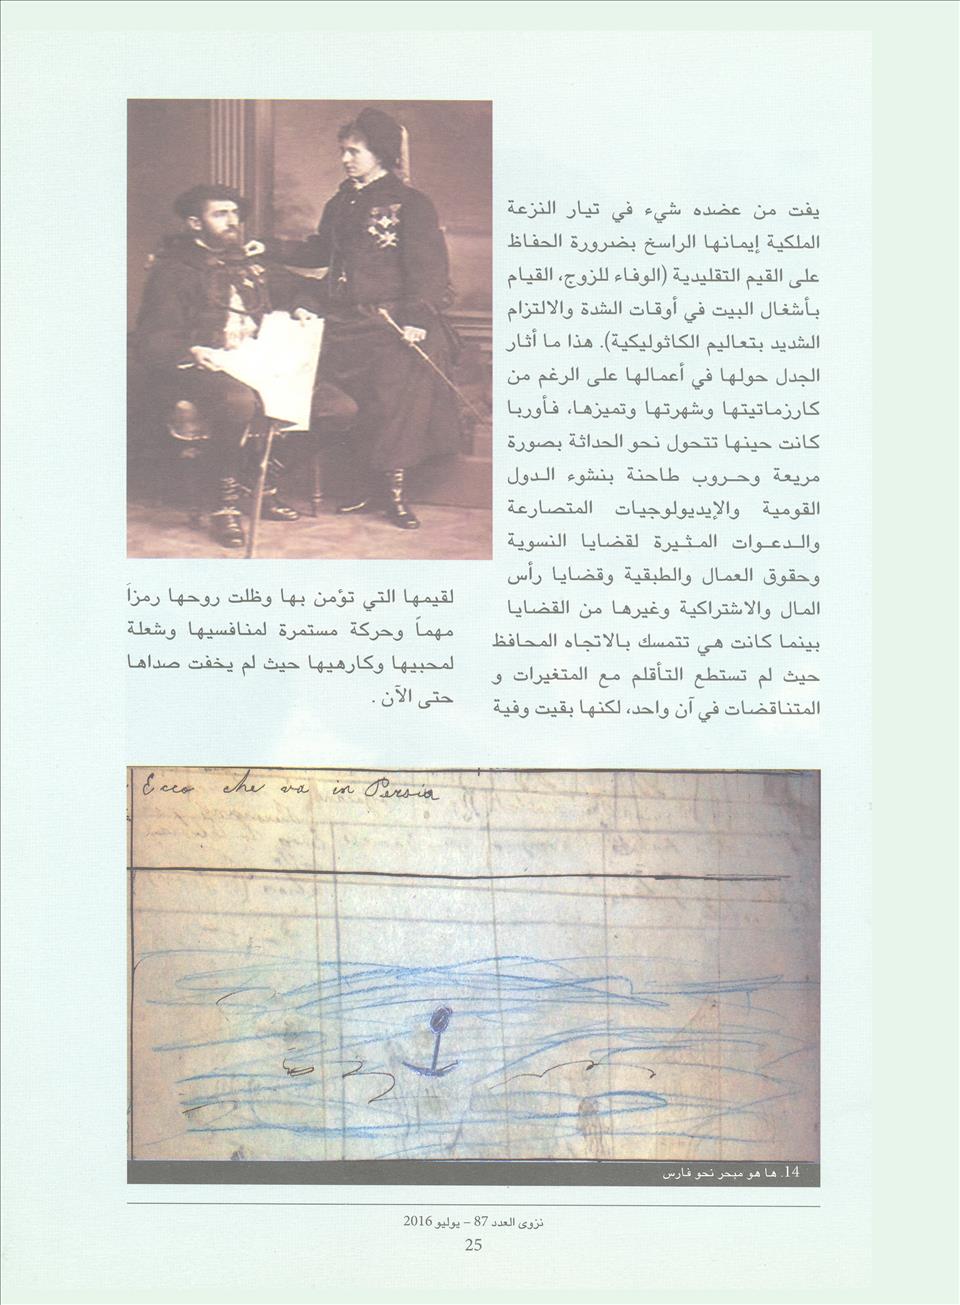 يفت من عضده شيء في تيار النزعة
الملكية إيمانها الراسخ بضرورة الحفاظ
على القيم التقليدية (الوفاء للزوج، القيام
بأشغال البيت في أوقات الشدة والالتزام
الشديد بتعاليم الكاثوليكية). هذا ما أثار
الجدل حولها في أعمالها على الرغم من
كارزماتيتها وشهرتها وتميزها، فأوربا
كانت حينها تتحول نحو الحداثة بصورة
مريعة وحروب طاحنة بنشوء الدول
القومية والإيديولوجيات المتصارعة
والدعوات المثيرة لقضايا النسوية
وحقوق العمال والطبقية وقضايا رأس
المال والاشتراكية وغيرها من القضايا
بينما كانت هي تتمسك بالاتجاه المحافظ
حيث لم تستطع التأقلم مع المتغيرات و
المتناقضات في آن واحد، لكنها بقيت وفية
لقيمها التي تؤمن بها وظلت روحها رمزاً
مهماً وحركة مستمرة لمنافسيها وشعلة
لمحبيها وكارهيها حيث لم يخفت صداها
حتى الآن .
Ecco che va in Persia
14. ها هو مبحر نحو فارس
نزوى العدد 87 – يوليو 2016
25